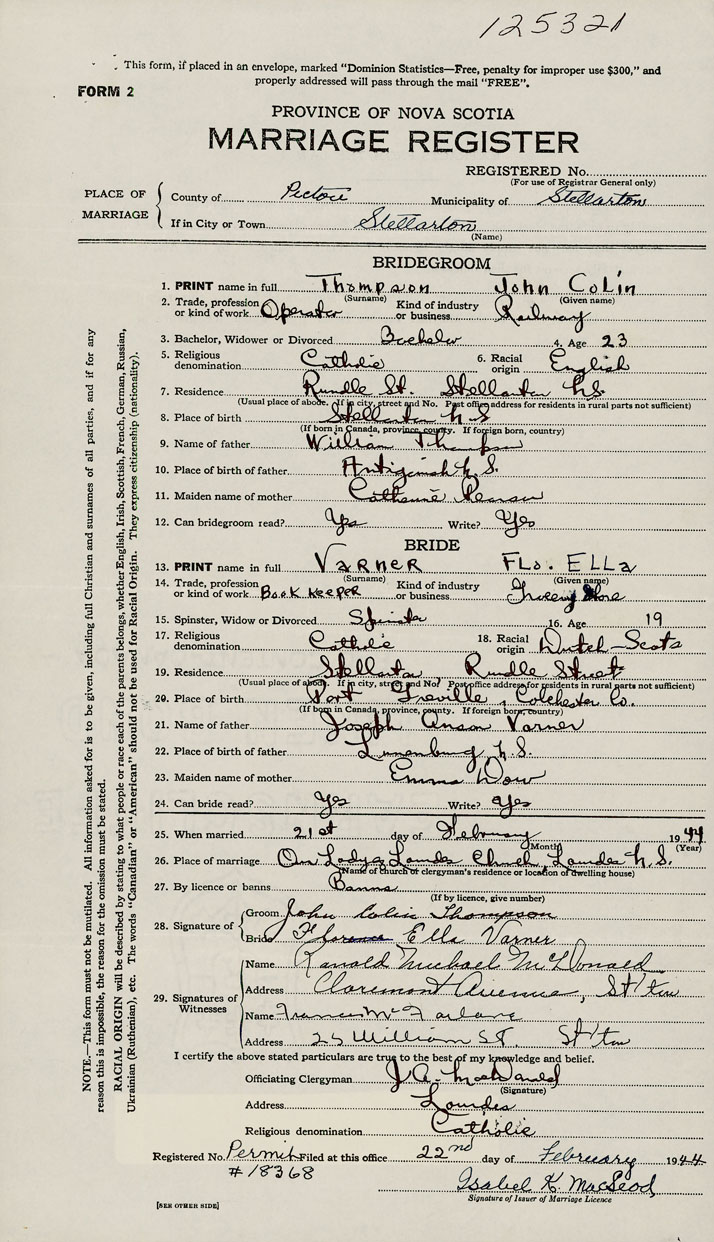 125321
This form, if placed in an envelope, marked "Dominion Statistics—Free, penalty for improper use $300," and
properly addressed will pass through the mail "FREE".
FORM 2
PROVINCE OF NOVA SCOTIA
MARRIAGE REGISTER
REGISTERED No.
(For use of Registrar General only)
PLACE OF MARRIAGE
County of Pictou Municipality of Stellarton
If in City or Town Stellarton
(Name)
BRIDEGROOM
1. PRINT name in full Thompson John Colin
(Surname) (Given name)
2. Trade, profession or kind of work Operator Kind of industry or business Railway
3. Bachelor, Widower or Divorced Bachelor 4. Age 23
5. Religious denomination Catholic 6. Racial origin English
7. Residence Rundle St. Stellarton N.S.
(Usual place of abode. If in city, street and No. Post office address for residents in rural parts not sufficient)
8. Place of birth Stellarton N S
(If born in Canada, province, county. If foreign born, country)
9. Name of father William Thompson
10. Place of birth of father Antigonish N.S.
11. Maiden name of mother Catherine
12. Can bridegroom read? Yes Write? Yes
BRIDE
13. PRINT name in full VARNER FLO. ELLA
(Surname) (Given name)
14. Trade, profession or kind of work Book Keeper Kind of industry or business Store
15. Spinster, Widow or Divorced Spinster 16. Age 19
17. Religious denomination Catholic 18. Racial origin Dutch-Scots
19. Residence Stellarton Rundle Street
(Usual place of abode. If in city, street and No. Post office address for residents in rural parts not sufficient)
20. Place of birth Port Greville, Colchester Co.
(If born in Canada, province, county. If foreign born, country)
21. Name of father Joseph Anson Varner
22. Place of birth of father Lunenburg N.S.
23. Maiden name of mother Emma Dow
24. Can bride read? Yes Write? Yes
25. When married 21st day of February 1944
(Month) (Year)
26. Place of marriage Our Lady of Lourdes Church, Lourdes N.S.
(Name of church or clergyman's residence or location of dwelling house)
27. By licence or banns Banns
(If by licence, give number)
28. Signature of
Groom John Colin Thompson
Bride Florence Ella Varner
29. Signatures of Witnesses
Name Ranald Michael McDonald
Address Claremont Avenue, St'ton
Name Francis McFarlane
Address 25 William St. St'ton
I certify the above stated particulars are true to the best of my knowledge and belief.
Officiating Clergyman J.A. MacDonald
(Signature)
Address Lourdes
Religious denomination Catholic
Registered No. Permit Filed at this office 22nd day of February 1944
#18368
Isabel K. MacLeod
Signature of Issuer of Marriage Licence
[SEE OTHER SIDE]
NOTE.—This form must not be mutilated. All information asked for is to be given, including full Christian and surnames of all parties, and if for any
reason this is impossible, the reason for the omission must be stated.
RACIAL ORIGIN will be described by stating to what people or race each of the parents belongs, whether English, Irish, Scottish, French, German, Russian,
Ukrainian (Ruthenian), etc. The words "Canadian" or "American" should not be used for Racial Origin. They express citizenship (nationality).